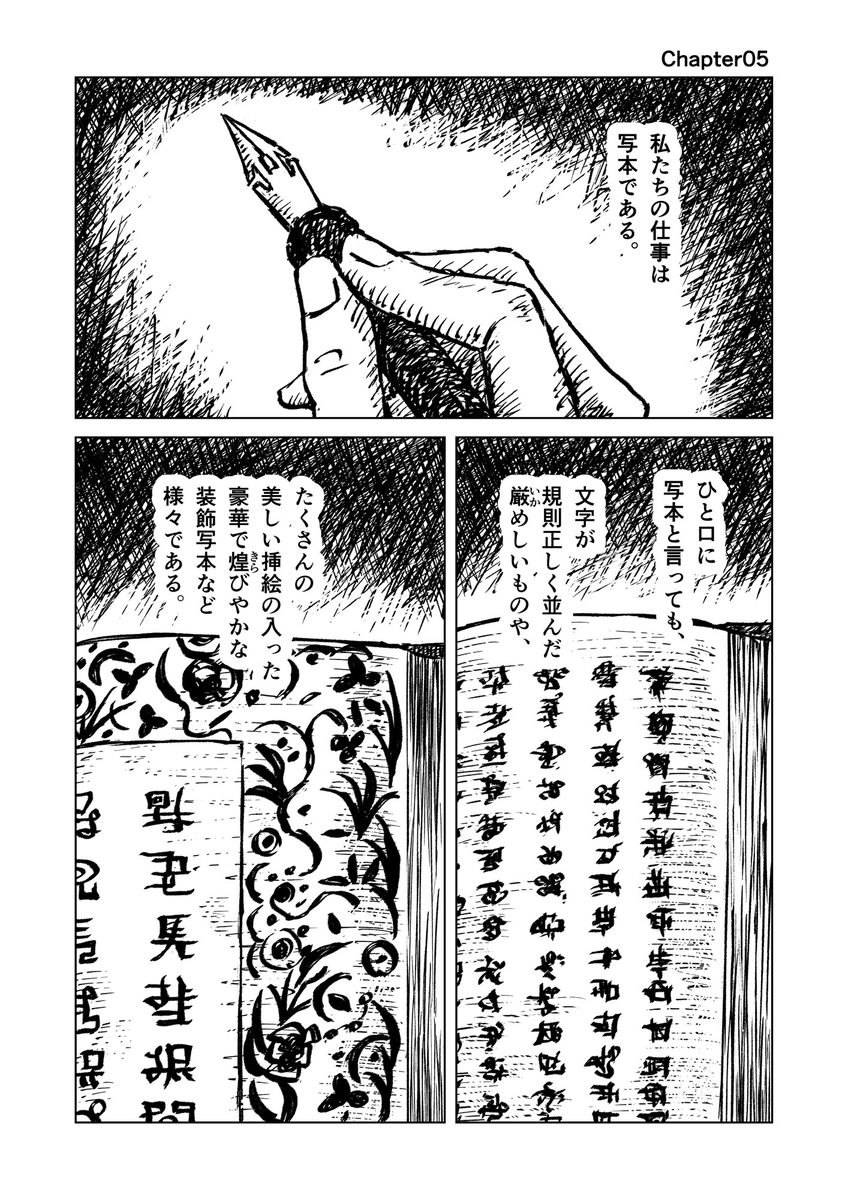 Chapter05
私たちの仕事は
写本である。
ひと口に
写本と言っても、
文字が
規則正しく並んだ
厳めしいものや、
いか
たくさんの
美しい挿絵の入った
豪華で煌びやかな
きら
装飾写本など
様々である。